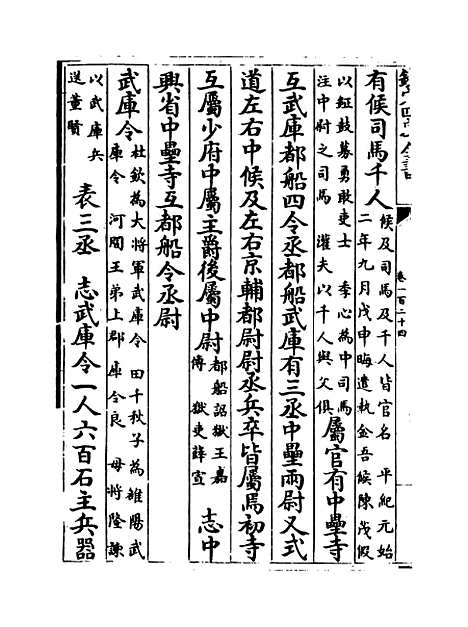 欽定四庫全書
卷一百二十四
有候司馬千人候及司馬及千人皆官名 平紀元始
二年九月戊申晦遣執金吾候陳茂假
以鉦鼓募勇敢吏士 季心為中司馬
注中尉之司馬 灌夫以千人與父俱屬官有中壘寺
互武庫都船四令丞都船武庫有三丞中壘兩尉又式
道左右中候及左右京輔都尉尉丞兵卒皆屬焉初寺
互屬少府中屬主爵後屬中尉都船詔獄王嘉
傳 獄吏薛宣 志中
興省中壘寺互都船令丞尉
武庫令杜欽為大將軍武庫令 田千秋子為雒陽武
庫令 河間王弟上郡庫令良 毋將隆諫
以武庫兵
送董賢 表三丞 志武庫令一人六百石主兵器